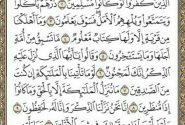 الَّذِينَ كَفَرُوا لَوْ كَانُوا مُسْلِمِينَ ۝ ذَرْهُمْ يَأْكُلُوا
وَيَتَمَتَّعُوا وَيُلْهِهِمُ الْأَمَلُ فَسَوْفَ يَعْلَمُونَ ۝ وَمَا أَهْلَكْنَا
مِن قَرْيَةٍ إِلَّا وَلَهَا كِتَابٌ مَّعْلُومٌ ۝ مَّا تَسْبِقُ مِنْ أُمَّةٍ
أَجَلَهَا وَمَا يَسْتَأْخِرُونَ ۝ وَقَالُوا يَا أَيُّهَا الَّذِي نُزِّلَ عَلَيْهِ
الذِّكْرُ إِنَّكَ لَمَجْنُونٌ ۝ لَّوْ مَا تَأْتِينَا بِالْمَلَائِكَةِ إِن كُنتَ
مِنَ الصَّادِقِينَ ۝ مَا نُنَزِّلُ الْمَلَائِكَةَ إِلَّا بِالْحَقِّ وَمَا كَانُوا
إِذًا مُّنظَرِينَ ۝ إِنَّا نَحْنُ نَزَّلْنَا الذِّكْرَ وَإِنَّا لَهُ لَحَافِظُونَ ۝